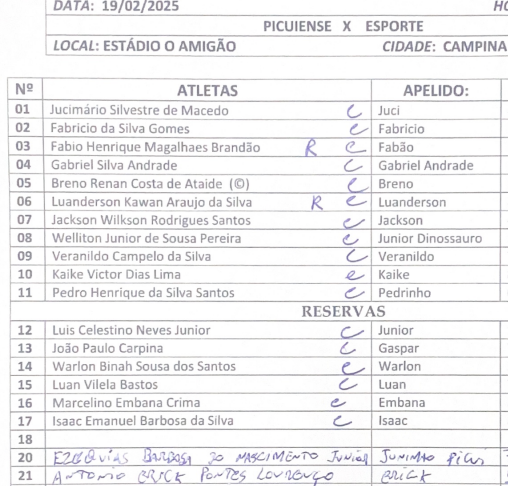 DATA: 19/02/2025 HO
PICUIENSE X ESPORTE
LOCAL: ESTÁDIO O AMIGÃO CIDADE: CAMPINA
Nº ATLETAS APELIDO:
01 Jucimário Silvestre de Macedo C Juci
02 Fabricio da Silva Gomes C Fabricio
03 Fabio Henrique Magalhaes Brandão R C Fabão
04 Gabriel Silva Andrade C Gabriel Andrade
05 Breno Renan Costa de Ataide (©) C Breno
06 Luanderson Kawan Araujo da Silva R C Luanderson
07 Jackson Wilkson Rodrigues Santos C Jackson
08 Welliton Junior de Sousa Pereira C Junior Dinossauro
09 Veranildo Campelo da Silva C Veranildo
10 Kaike Victor Dias Lima C Kaike
11 Pedro Henrique da Silva Santos C Pedrinho
RESERVAS
12 Luis Celestino Neves Junior C Junior
13 João Paulo Carpina C Gaspar
14 Warlon Binah Sousa dos Santos C Warlon
15 Luan Vilela Bastos C Luan
16 Marcelino Embana Crima C Embana
17 Isaac Emanuel Barbosa da Silva C Isaac
18
20 EZEQUIAS BARBOSA DO NASCIMENTO JUNIOR JUNINHO
21 ANTONIO ERICK PONTES LOURENÇO ERICK